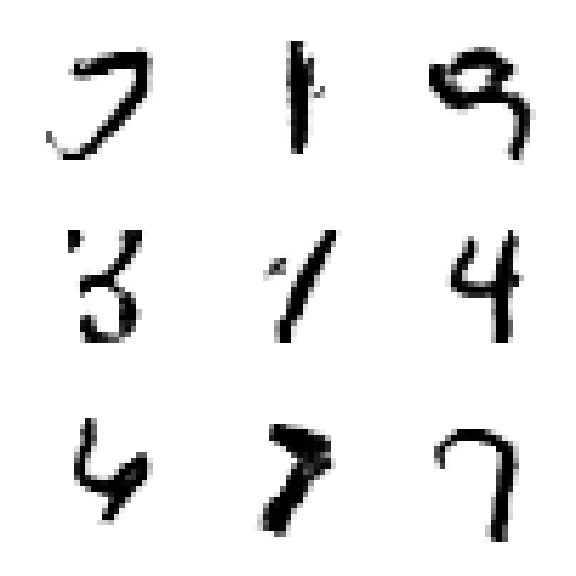 7 1 9
3 1 4
4 7 7